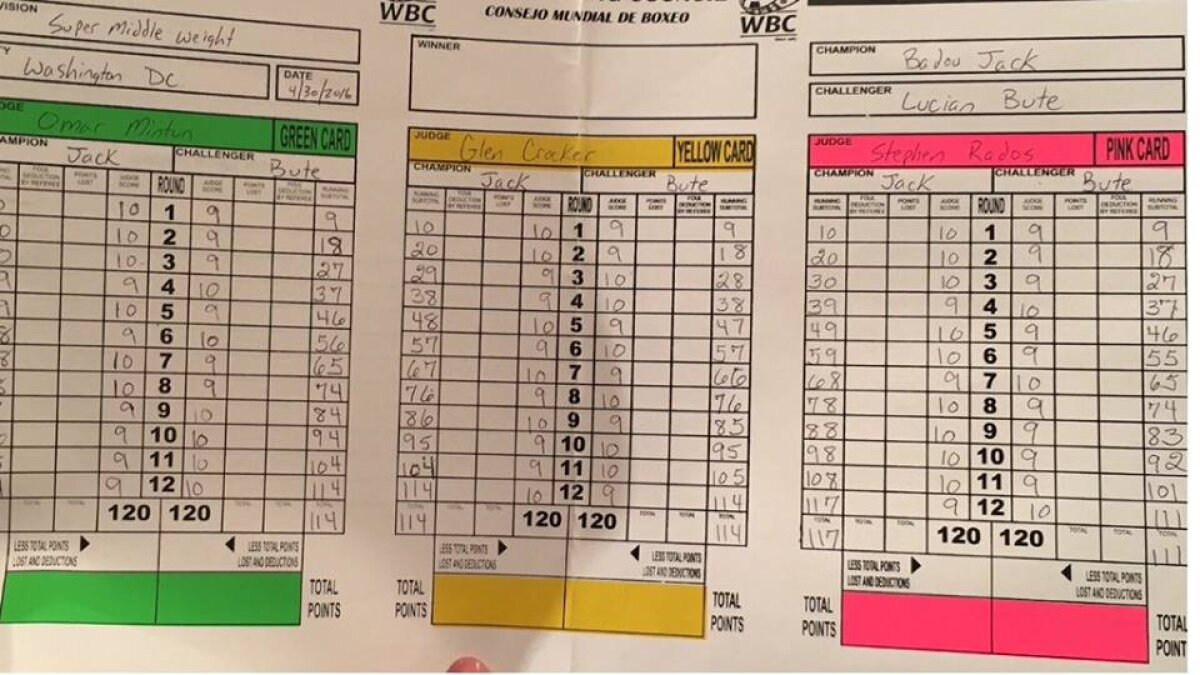 VISION
Super Middle Weight
Washington DC
DATE
4/30/2016
Omar Mintun GREEN CARD
AMPION Jack CHALLENGER Bute
FOUL DEDUCTION BY REFEREE POINTS LOST JUDGE SCORE ROUND JUDGE SCORE POINTS LOST FOUL DEDUCTION BY REFEREE RUNNING SUBTOTAL
10 1 9 9
10 2 9 18
10 3 9 27
9 4 10 37
10 5 9 46
9 6 10 56
10 7 9 65
10 8 9 74
9 9 10 84
9 10 10 94
9 11 10 104
9 12 10 114
TOTAL TOTAL 120 120 TOTAL TOTAL 114
LESS TOTAL POINTS LESS TOTAL POINTS
LOST AND DEDUCTIONS LOST AND DEDUCTIONS
TOTAL
POINTS
WBC
CONSEJO MUNDIAL DE BOXEO
WBC
WINNER
JUDGE Glen Crocker YELLOW CARD
CHAMPION Jack CHALLENGER Bute
RUNNING SUBTOTAL FOUL DEDUCTION BY REFEREE POINTS LOST JUDGE SCORE ROUND JUDGE SCORE POINTS LOST FOUL DEDUCTION BY REFEREE RUNNING SUBTOTAL
10 10 1 9 9
20 10 2 9 18
29 9 3 10 28
38 9 4 10 38
48 10 5 9 47
57 9 6 10 57
67 10 7 9 66
76 9 8 10 76
86 10 9 9 85
95 9 10 10 95
104 9 11 10 105
114 10 12 9 114
TOTAL 114 TOTAL TOTAL 120 120 TOTAL TOTAL TOTAL 114
LESS TOTAL POINTS LESS TOTAL POINTS
LOST AND DEDUCTIONS LOST AND DEDUCTIONS
TOTAL POINTS TOTAL POINTS
CHAMPION Badou Jack
CHALLENGER Lucian Bute
JUDGE Stephen Rados PINK CARD
CHAMPION Jack CHALLENGER Bute
RUNNING SUBTOTAL FOUL DEDUCTION BY REFEREE POINTS LOST JUDGE SCORE ROUND JUDGE SCORE POINTS LOST FOUL DEDUCTION BY REFEREE RUNNING SUBTOTAL
10 10 1 9 9
20 10 2 9 18
30 10 3 9 27
39 9 4 10 37
49 10 5 9 46
59 10 6 9 55
68 9 7 10 65
78 10 8 9 74
88 10 9 9 83
98 10 10 9 92
108 10 11 9 101
117 9 12 10 111
TOTAL 117 TOTAL TOTAL 120 120 TOTAL TOTAL TOTAL 111
LESS TOTAL POINTS LESS TOTAL POINTS
LOST AND DEDUCTIONS LOST AND DEDUCTIONS
TOTAL POINTS TOTAL POINT